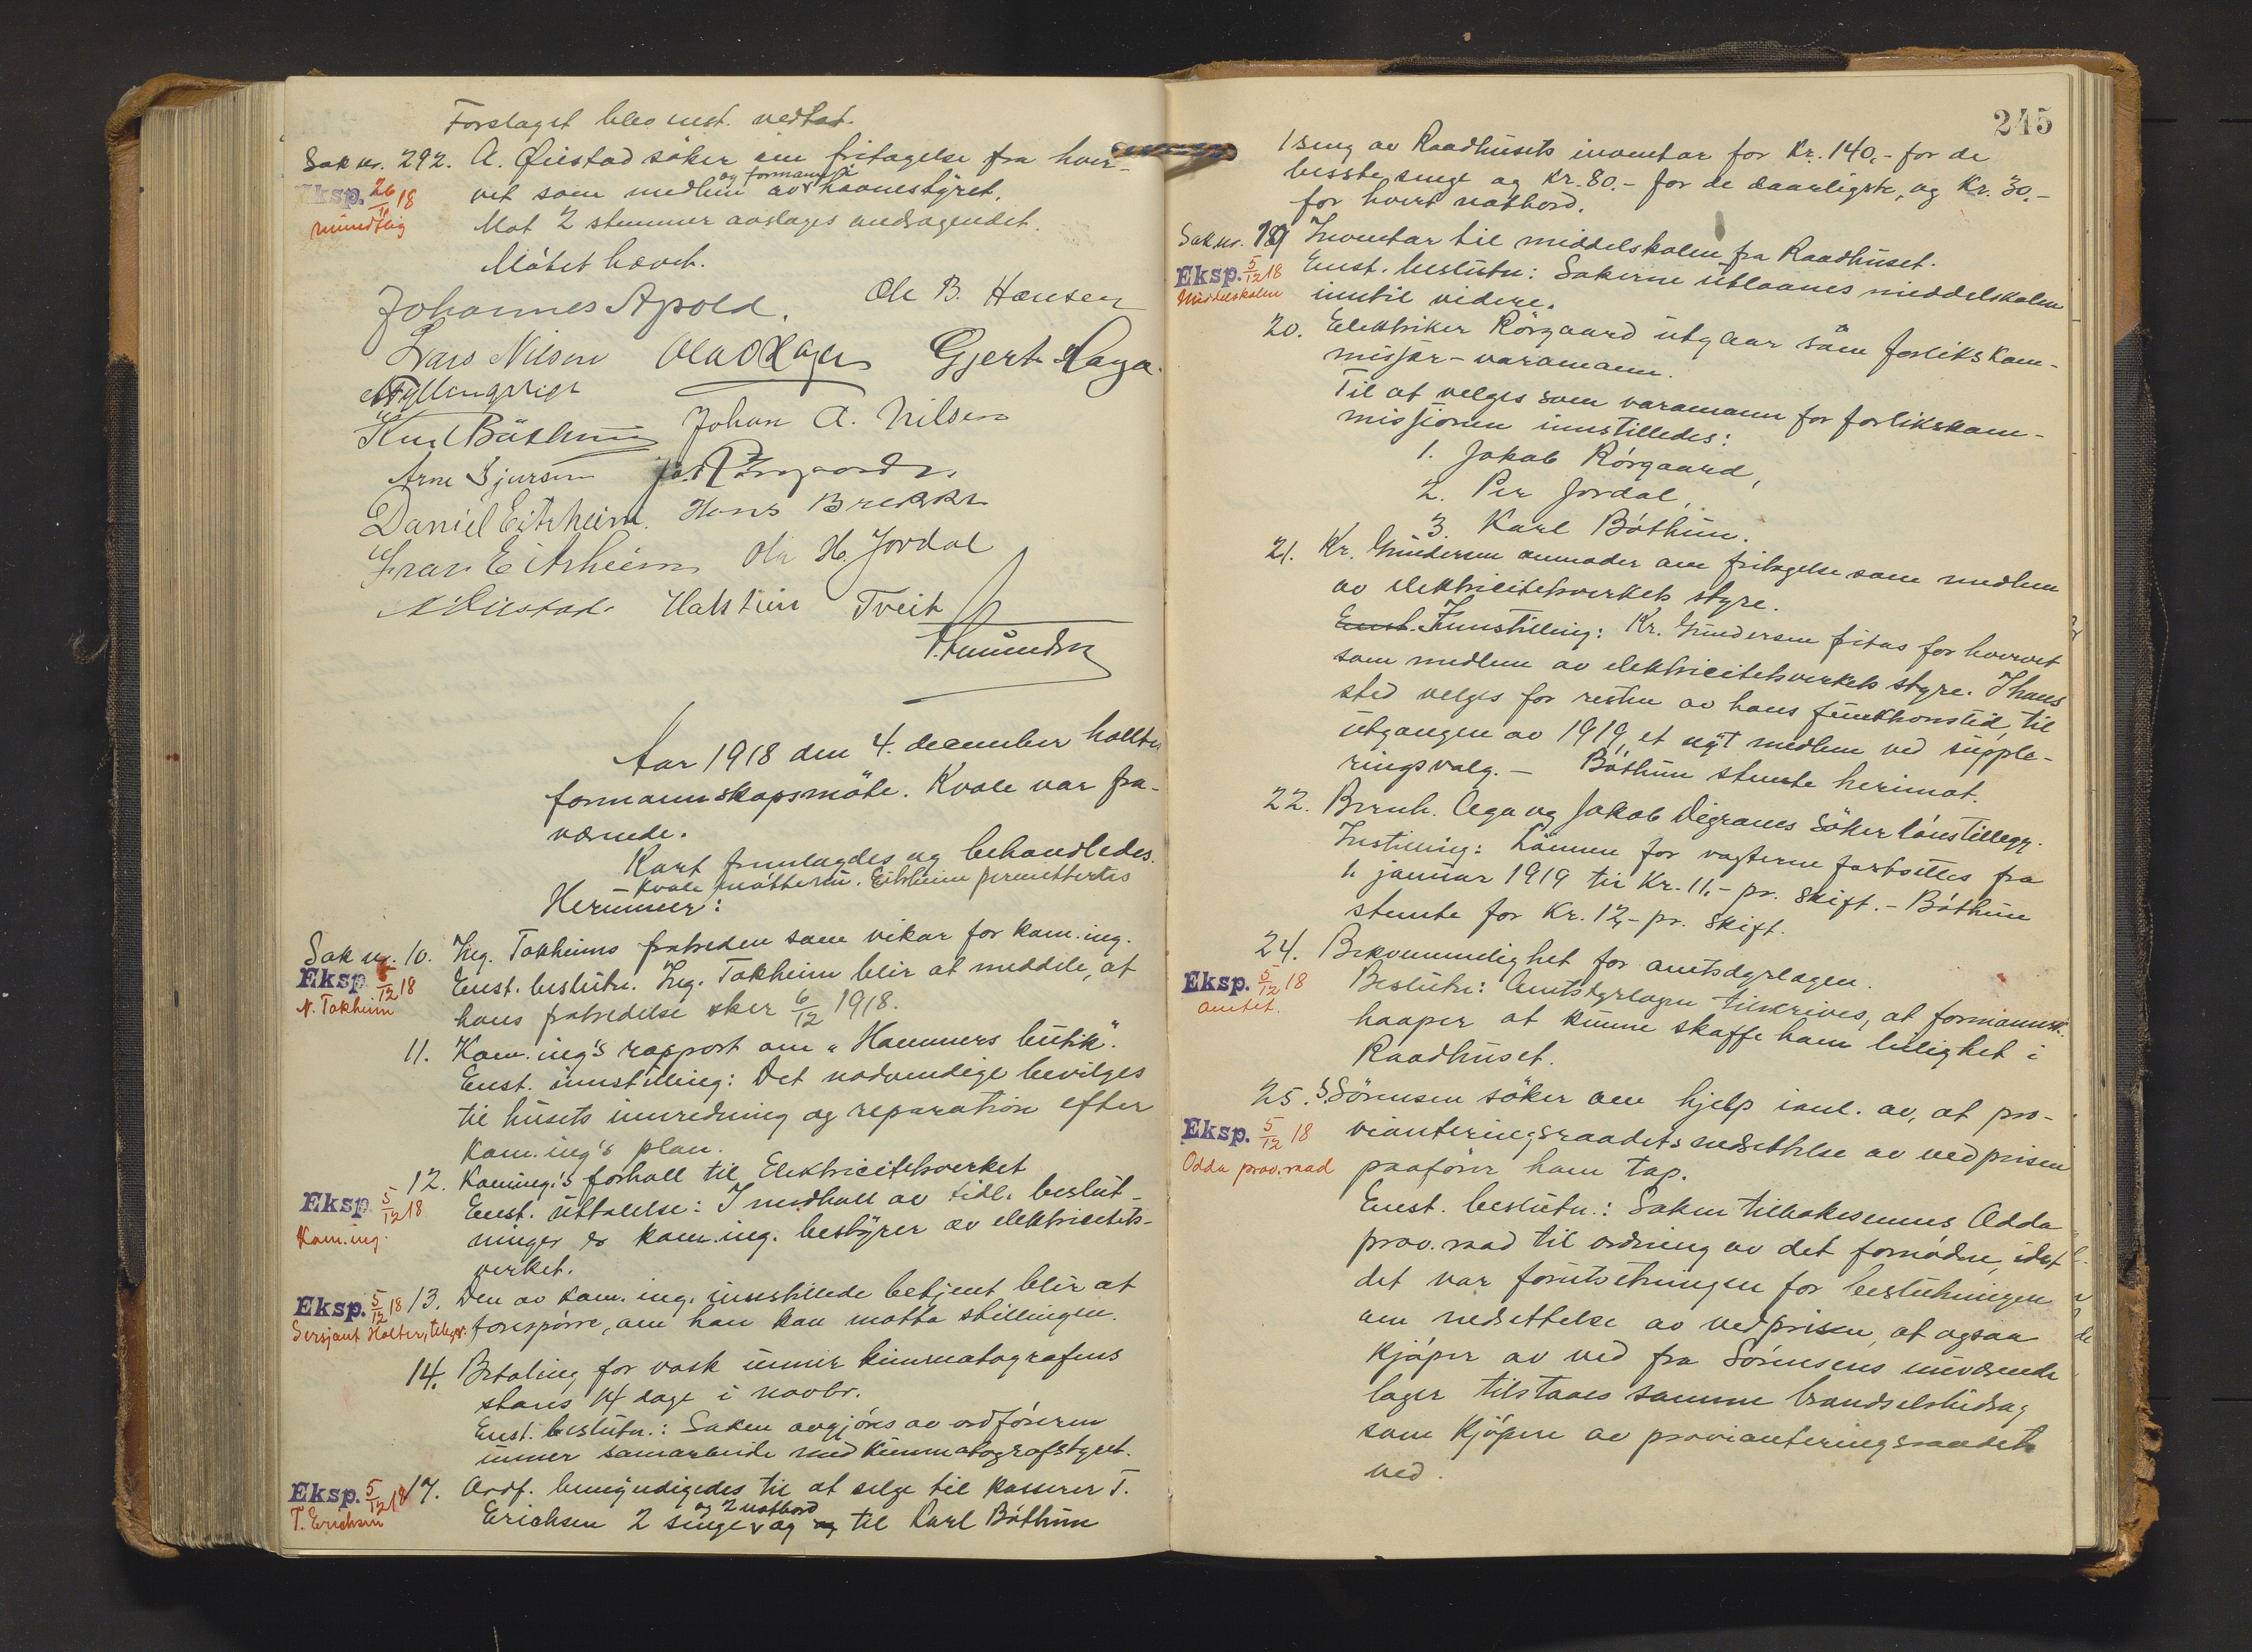 Forslaget blev enst. vedtat.
Sak nr. 292. A. Øustad söker om fritagelse fra hver-
Eksp. 26/11 18 vet som medlem av og formann i havnestyret.
mundtlig Mot 2 stemmer avslages andragendet.
Mötet hævet.
Johannes Apold. Ole B. Hansen
Lars Nilsen Olav O Aga Gjert Haga.
Karl Böthun Johan A. Nilsen
Arne Gjersen Jak. Rörgaard
Daniel Eitrheim. Hans Brekke
Eitrheim Ole H. Jordal
A. Øustad. Halstein Tveit
Aar 1918 den 4. december holltes
formannskapsmöte. Kvale var fra-
værende.
Kart fremlagdes og behandledes.
– Kvale mötte nu. Eitrheim permittertes
Herunner:
Sak nr. 10. Ing. Tokheims fratreden som vikar for kom. ing.
Eksp. 5/12 18 Enst. beslutn. Ing. Tokheim blir at meddele, at
N. Tokheim hans fratredelse sker 6/12 1918.
11. Kom. ing's rapport om "Hammers butik".
Enst. innstilling: Det nödvendige bevilges
til husets innredning og reparation efter
kom. ing's plan.
12. Koming.'s forhold til Elektricitetsverket
Eksp. 5/12 18 Enst. uttalelse: I medhall av tidl. beslut-
Kom. ing. ninger er kom. ing. bestyrer av elektricitets-
verket.
Eksp. 5/12 18 13. Den av kom. ing. innstillede betjent blir at
Sersjant Holter, telegr. forespörre, om han kan motta stillingen.
14. Betaling for vask unner kinematografens
stans 14 dage i novbr.
Enst. beslutn.: Saken avgjöres av ordföreren
unner samarbeide med kinematografstyret.
Eksp. 5/12 18 17. Ordf. bemyndigedes til at selge til kasserer T.
T. Erichsen Erichsen 2 senge og 2 natbord og til Karl Böthun
245
1 seng av Raadhusets inventar for Kr. 140,- for de
besste senge og Kr. 80.- for de daarligste, og Kr. 30.-
for hvert natbord.
Sak nr. 19 Inventar til middelskolen fra Raadhuset.
Eksp. 5/12 18 Enst. beslutn: Sakerne utlaanes middelskolen
Middelskolen inntil videre.
20. Elektriker Rörgaard utgaar som forlikskom-
missjær-varamann.
Til at velges som varamann for forlikskom-
missjonen innstilledes:
1. Jakob Rörgaard,
2. Per Jordal,
3. Karl Böthun.
21. Kr. Gundersen anmoder om fritagelse som medlem
av elektricitetsverkets styre.
Enst. Innstilling: Kr. Gundersen fritas for hvervet
som medlem av elektricitetsverkets styre. I hans
sted velges for resten av hans funktionstid, til
utgangen av 1919, et nyt medlem ved supple-
ringsvalg. – Böthun stemte herimot.
22. Bernh. Aga og Jakob Digranes söker lönstillegg.
Instilling: Lönnen for vagterne fortsettes fra
1. januar 1919 til Kr. 11,- pr. skift. – Böthun
stemte for Kr. 12,- pr. skift.
24. Bekvemmelighet for amtsdyrlægen.
Eksp. 5/12 18 Beslutn: Amtsdyrlægen tilskrives, at formannsk.
amtet. haaper at kunne skaffe ham leilighet i
Raadhuset.
25. S. Sörensen söker om hjelp ianl. av, at pro-
Eksp. 5/12 18 vianteringsraadets nedsettelse av vedprisen
Odda prov. raad paaförer ham tap.
Enst. beslutn.: Saken tilbakesennes Odda
prov. raad til ordning av det fornödne, idet
det var forutsetningen for beslutningen
om nedsettelse av vedprisen, at ogsaa
kjöper av ved fra Sörensens nuværende
lager tilstaaes samme brændselsbidrag
som kjöpere av provianteringsraadets
ved.